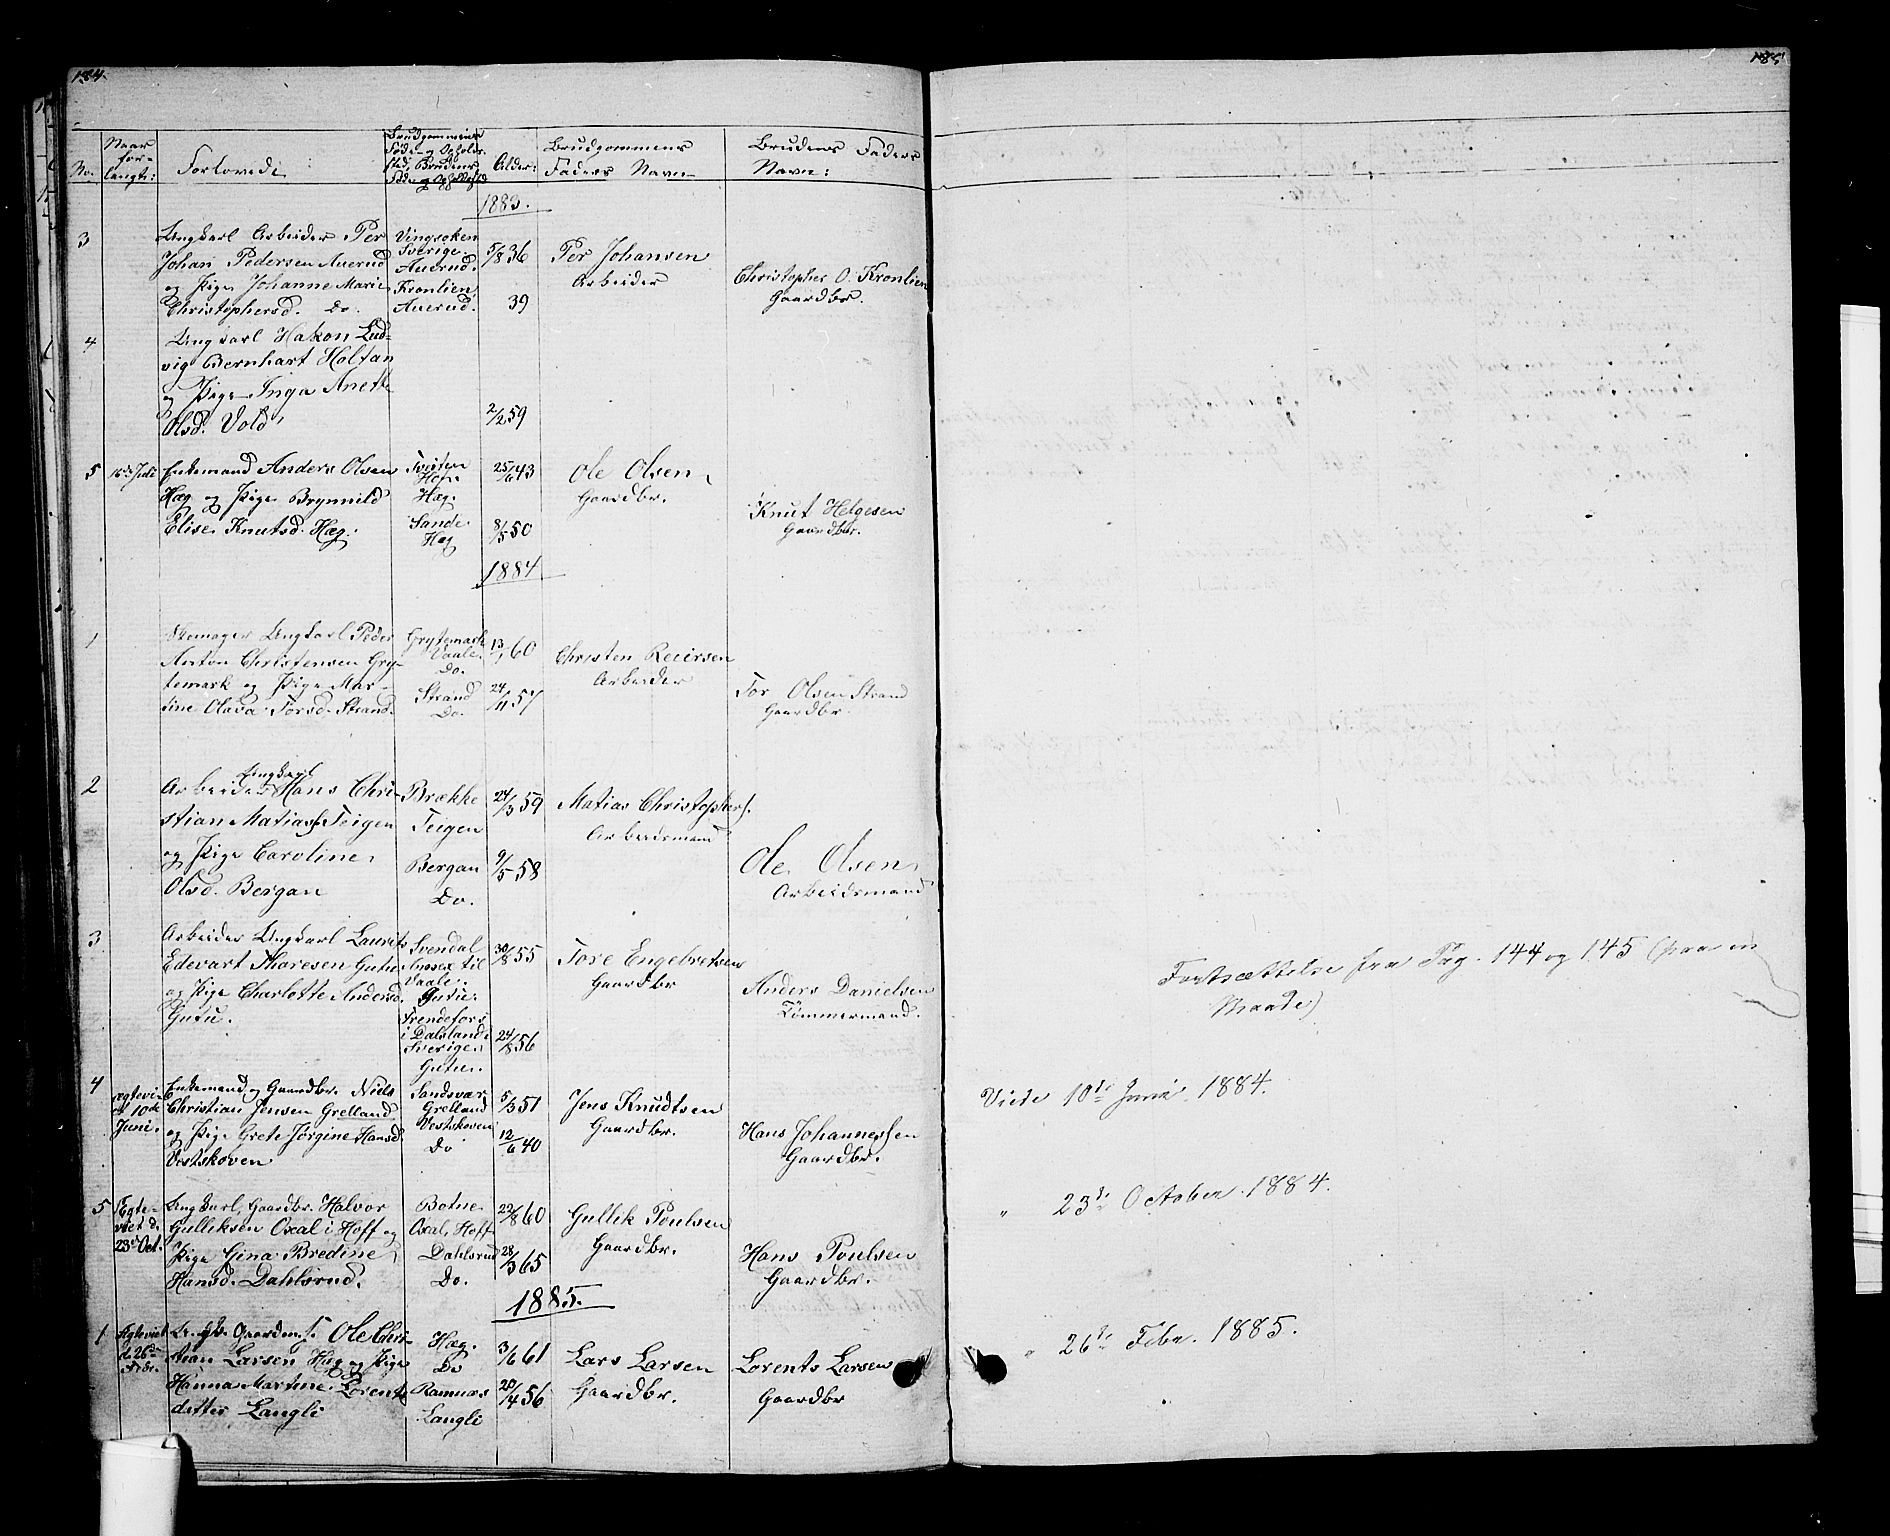 184.
No.
Naar
for-
langt:
Forlovede
Brudgommens
Føde- og Ophols-
sted, Brudens
Føde- og Opholdssted
Alder:
Brudgommens
Faders Navn
Brudens Faders
Navn:
1883.
3
Ungkarl Arbeider Per
Johan Pedersen Auerud
og Pige Johanne Marie
Christophersd. Do.
Vingsoken
Sverige.
Auerud.
Kronlien
Auerud.
5/8 36
39
Per Johansen
Arbeider
Christopher O. Kronlien
Gaardbr.
4
Ungkarl Hakon Lud-
vig Bernhart Holtan
og Pige Inga Anette
Olsd. Vold
2/2 59
5
16de Juli
Enkemand Anders Olsen
Hæg og Pige Brynnild
Elise Knutsd. Hæg.
Tveiten
Hof.
Hæg.
Sande.
Hæg
25/6 43
8/5 50
Ole Olsen
Gaardbr.
Knut Helgesen
Gaardbr.
1884
1
Skomager Ungkarl Peder
Anton Christensen Gry-
temark og Pige Mar-
tine Olava Torsd. Strand.
Grytemark
Vaale.
Do.
Strand
Do.
13/1 60
24/11 57
Christen Reiersen
Arbeider
Tor Olsen Strand
Gaardbr.
2
Ungkarl
Arbeider Hans Chri-
stian Matiass. Teigen
og Pige Caroline
Olsd. Bergan
Brække
Teigen
Bergan
Do.
24/3 59
9/5 58
Matias Christophers.
Arbeidsmand
Ole Olsen
Arbeidsmand
3
Arbeider Ungkarl Laurits
Edevart Thoresen Gutu
og Pige Charlotte Andersd.
Gutu.
Svendal
Annex til
Vaale.
Gutu.
Frendefors
i Dalsland i
Sverige.
Gutu.
30/8 55
24/8 56
Tore Engebretsen
Gaardbr
Anders Danielsen
Tömmermand.
4
Ægtevi-
et 10de
Juni.
Enkemand og Gaardbr. Niels
Christian Jensen Grelland
og Pige Grete Jørgine Hansd.
Vestskoven
Sandsvær
Grelland
Vestskoven
Do
5/3 51
12/6 40
Jens Knudtsen
Gaardbr.
Hans Johannessen
Gaardbr.
5
Ægte-
viet d.
23d Oct.
Ungkarl, Gaardbr. Halvor
Gulliksen Oxal i Hoff og
Pige Gina Bredine
Hansd. Dahlsrud.
Botne
Oxal, Hoff
Dahlsrud
Do.
22/8 60
28/3 65
Gullik Poulsen
Gaardbr.
Hans Poulsen
Gaardbr.
1885.
1
Ægteviet
d. 26de
Febr.
Ungk. Gaardm. s. Ole Chri-
stian Larsen Hæg og Pige
Hanna Martine Lorents-
datter Langli
Hæg.
Do
Ramnæs
Langli
3/6 61
20/4 56
Lars Larsen
Gaardbr.
Lorents Larsen
Gaardbr
185
Fortsættelse fra Pag. 144 og 145 (paa en
Maade)
Viede 10de Juni. 1884.
" 23de October. 1884.
" 26de Febr. 1885.